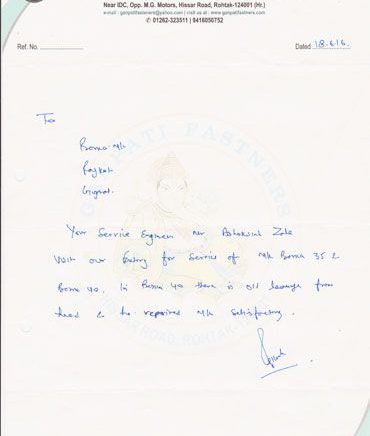 Near IDC, Opp. M.G. Motors, Hissar Road, Rohtak-124001 (Hr.)
e-mail : ganpatifasteners@yahoo.com | visit us at : www.ganpatifastners.com
✆ 01262-323511 | 9416050752
Ref. No.
Dated 18.6.16.
To
Borna M/c
Rajkot
Gujrat.
Your Service Engineer Mr Ashokvind Zala
Visit our factory for Service of M/c Borna 35 &
Borna 40. In Borna 40 there is oil leakage from
head & he repaired M/c Satisfactory.
GANPATI FASTNERS
HISSAR ROAD, ROHTAK